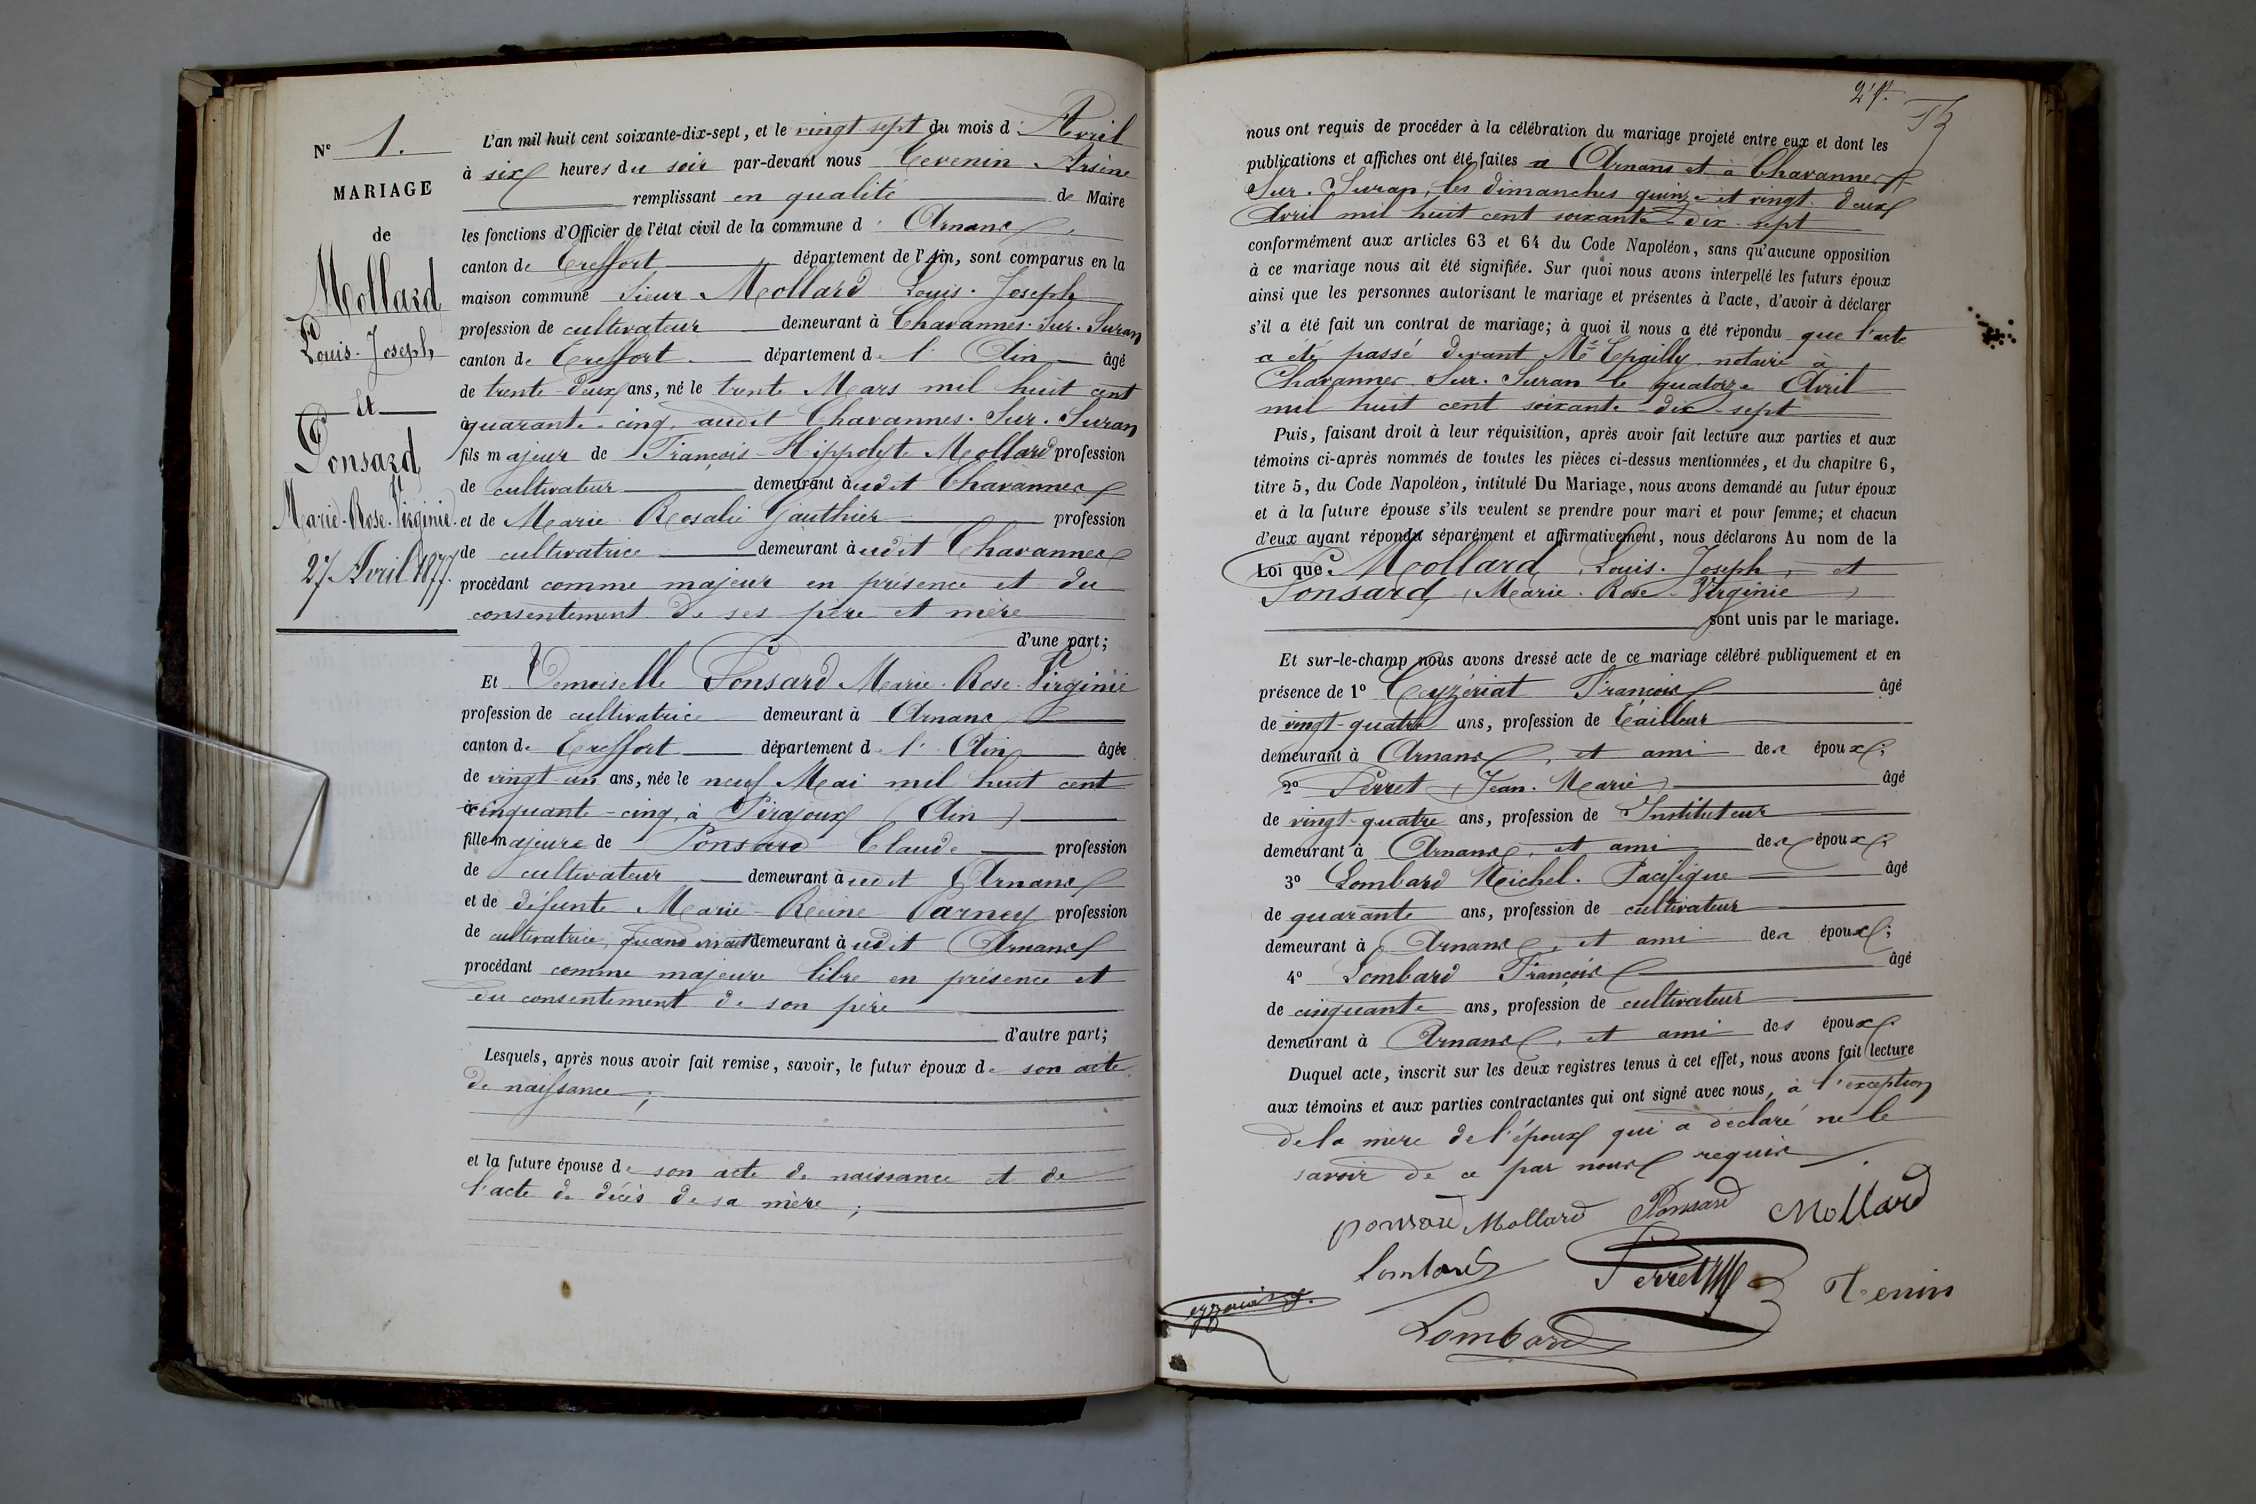 N° 1.
MARIAGE
de
Mollard
Louis-Joseph
et
Ponsard
Marie-Rose-Virginie
27 Avril 1877.
L'an mil huit cent soixante-dix-sept, et le vingt sept du mois d'Avril
à six heures du soir par-devant nous Tevenin Arsène
remplissant en qualité de Maire
les fonctions d'Officier de l'état civil de la commune d'Arnans,
canton de Treffort département de l'Ain, sont comparus en la
maison commune sieur Mollard Louis-Joseph
profession de cultivateur demeurant à Chavannes-sur-Suran
canton de Treffort département de l'Ain âgé
de trente-deux ans, né le trente Mars mil huit cent
quarante-cinq, audit Chavannes-sur-Suran
fils majeur de François-Hippolyte Mollard profession
de cultivateur demeurant audit Chavannes
et de Marie Rosalie Gauthier profession
de cultivatrice demeurant audit Chavannes
procédant comme majeur en présence et du
consentement de ses père et mère
d'une part;
Et Demoiselle Ponsard Marie-Rose-Virginie
profession de cultivatrice demeurant à Arnans
canton de Treffort département de l'Ain âgée
de vingt un ans, née le neuf Mai mil huit cent
cinquante-cinq, à Pirajoux (Ain)
fille majeure de Ponsard Claude profession
de cultivateur demeurant audit Arnans
et de défunte Marie-Reine Parney profession
de cultivatrice, quand vivait demeurant audit Arnans
procédant comme majeure libre en présence et
du consentement de son père
d'autre part;
Lesquels, après nous avoir fait remise, savoir, le futur époux de son acte
de naissance;
et la future épouse de son acte de naissance et de
l'acte de décès de sa mère;
nous ont requis de procéder à la célébration du mariage projeté entre eux et dont les
publications et affiches ont été faites à Arnans et à Chavannes-
sur-Suran, les dimanches quinze et vingt-deux
Avril mil huit cent soixante-dix-sept
conformément aux articles 63 et 64 du Code Napoléon, sans qu'aucune opposition
à ce mariage nous ait été signifiée. Sur quoi nous avons interpellé les futurs époux
ainsi que les personnes autorisant le mariage et présentes à l'acte, d'avoir à déclarer
s'il a été fait un contrat de mariage; à quoi il nous a été répondu que l'acte
a été passé devant Me Epailly, notaire à
Chavannes-sur-Suran le quatorze Avril
mil huit cent soixante-dix-sept
Puis, faisant droit à leur réquisition, après avoir fait lecture aux parties et aux
témoins ci-après nommés de toutes les pièces ci-dessus mentionnées, et du chapitre 6,
titre 5, du Code Napoléon, intitulé Du Mariage, nous avons demandé au futur époux
et à la future épouse s'ils veulent se prendre pour mari et pour femme; et chacun
d'eux ayant répondu séparément et affirmativement, nous déclarons Au nom de la
Loi que Mollard, Louis-Joseph, et
Ponsard, Marie-Rose-Virginie,
sont unis par le mariage.
Et sur-le-champ nous avons dressé acte de ce mariage célébré publiquement et en
présence de 1° Ceyzériat François âgé
de vingt-quatre ans, profession de Tailleur
demeurant à Arnans, et ami des époux;
2° Perret (Jean-Marie) âgé
de vingt-quatre ans, profession de Instituteur
demeurant à Arnans, et ami des époux;
3° Lombard Michel-Pacifique âgé
de quarante ans, profession de cultivateur
demeurant à Arnans, et ami des époux;
4° Lombard François âgé
de cinquante ans, profession de cultivateur
demeurant à Arnans, et ami des époux.
Duquel acte, inscrit sur les deux registres tenus à cet effet, nous avons fait lecture
aux témoins et aux parties contractantes qui ont signé avec nous, à l'exception
de la mère de l'époux qui a déclaré ne le
savoir de ce par nous requis.
ponsard Mollard Ponsard Mollard
Lombard Perret
Lombard